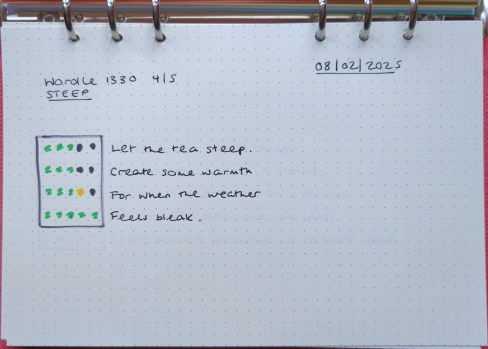 08/02/2025
Wordle 1330 4/5
STEEP
Let the tea steep.
Create some warmth
For when the weather
Feels bleak.